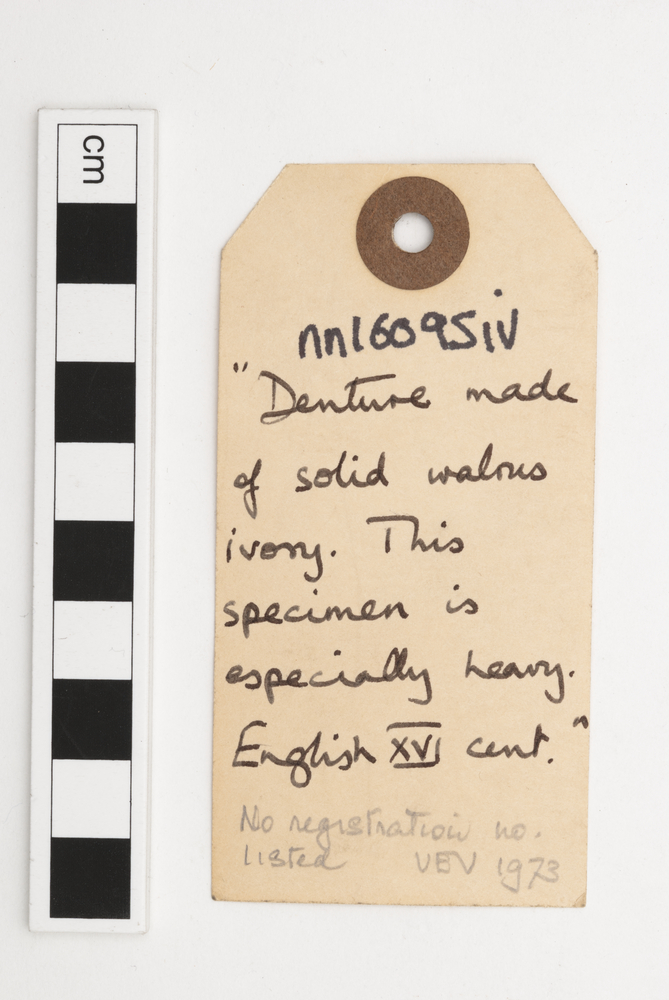 cm
nn160951V
"Denture made
of solid walrus
ivory. This
specimen is
especially heavy.
English XVI cent."
No registration no.
listed VEV 1973